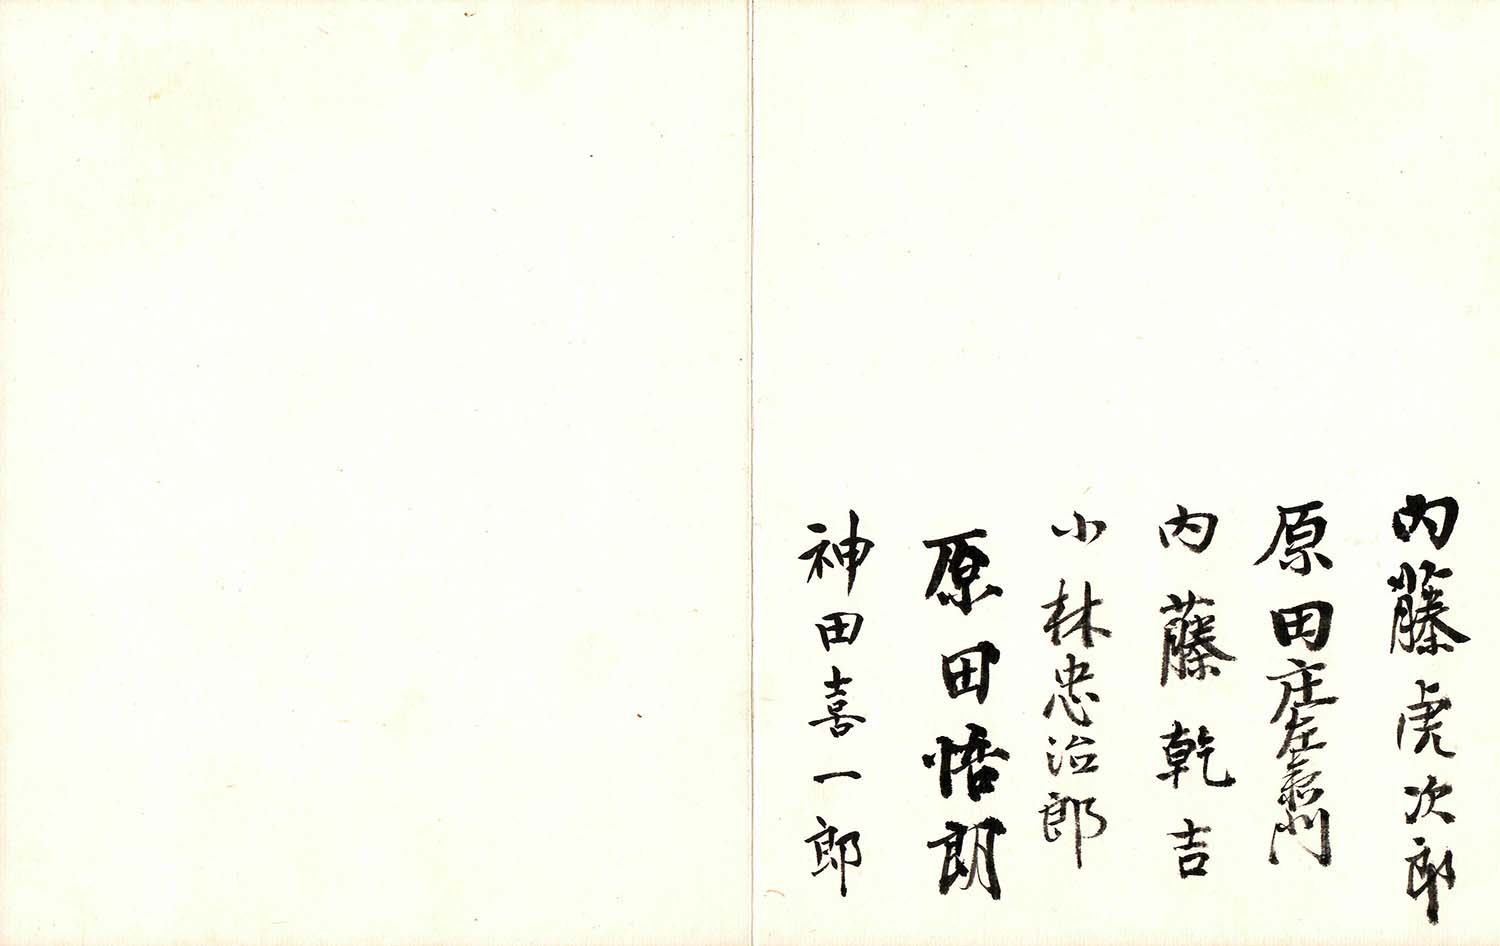 内藤虎次郎
原田庄左衞門
内藤乾吉
小林忠治郎
原田悟朗
神田喜一郎